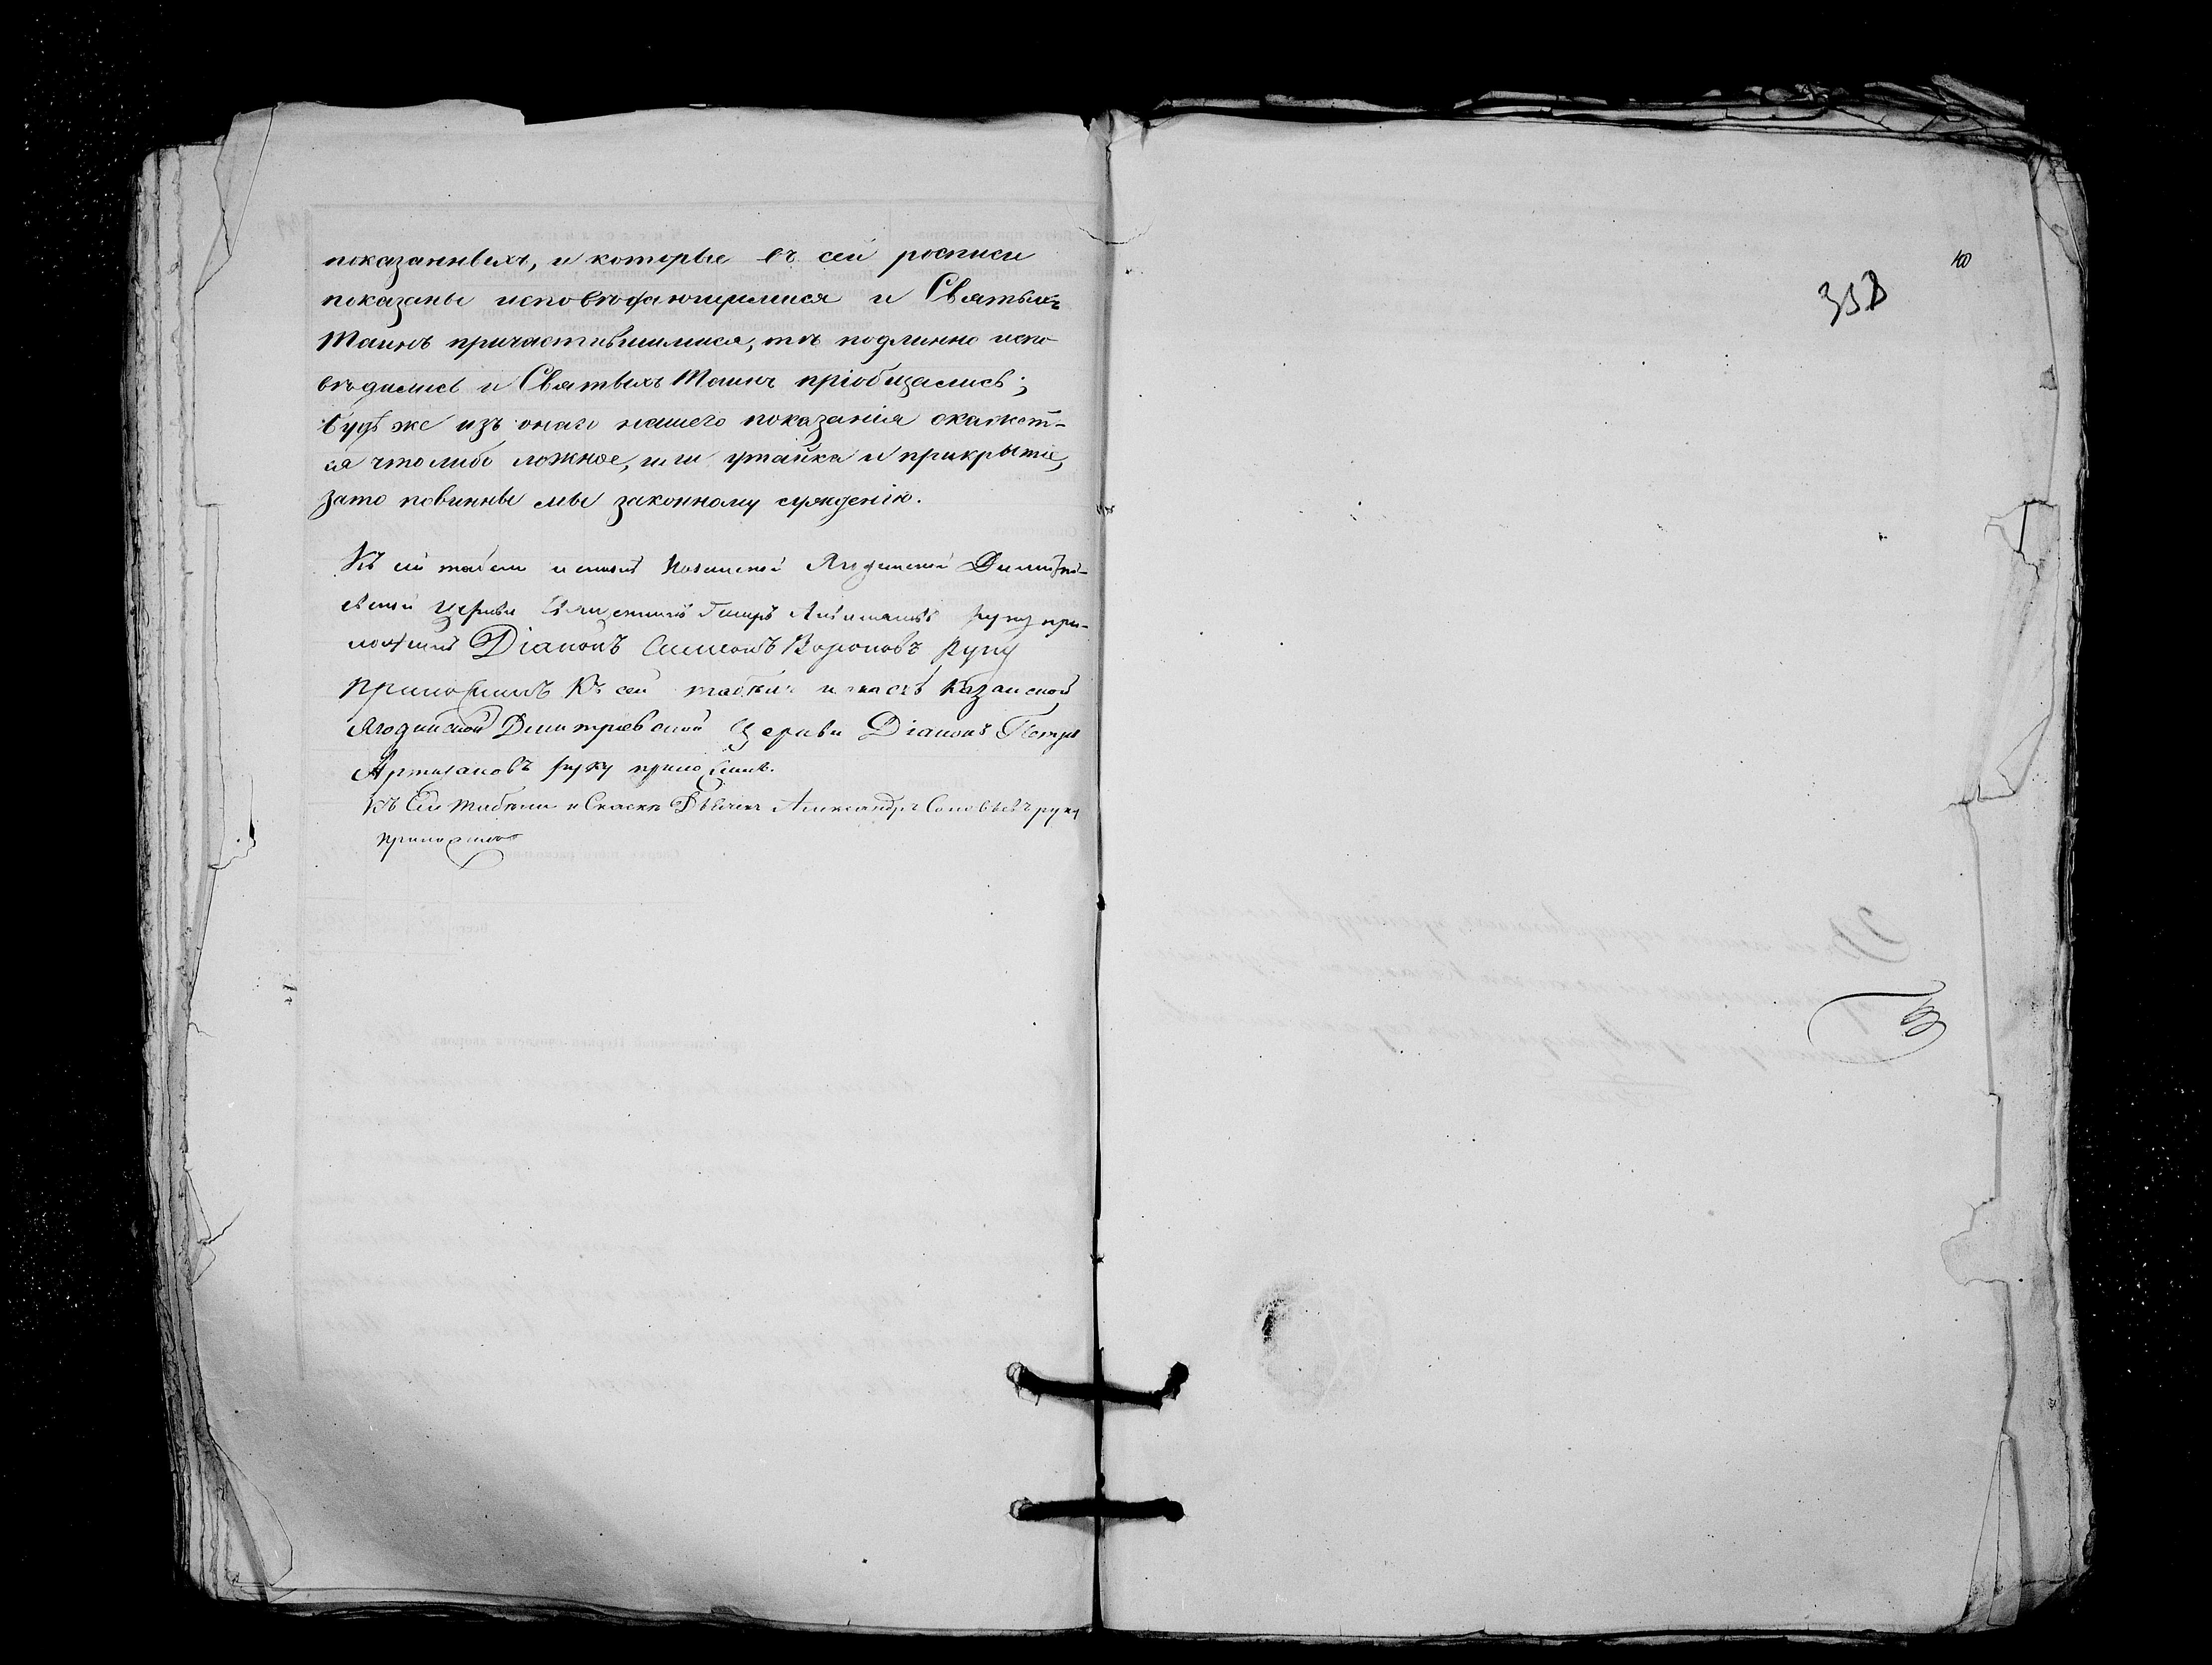 показанныхъ, и которые въ сей росписи
показаны исповѣдающимися и Святыхъ
Таинъ причастившимися, тѣ подлинно испо-
вѣдались и Святыхъ Таинъ пріобщались;
будѣ же изъ онаго нашего показанія окажет-
ся что либо ложное, или утайка и прикрытіе,
зато повинны мы законному сужденію.
Къ сей табели и сказкѣ Казанской Ягодинской Димитрі-
евской церкви Священникъ руку при-
ложилъ Діаконъ Симеонъ Вороновъ руку
приложилъ Къ сей табели и сказкѣ Казанской
Ягодинской Димитріевской Церкви Діаконъ Петръ
руку приложилъ.
Къ сей табели и Сказкѣ Александръ Соловьевъ руку
приложилъ
40